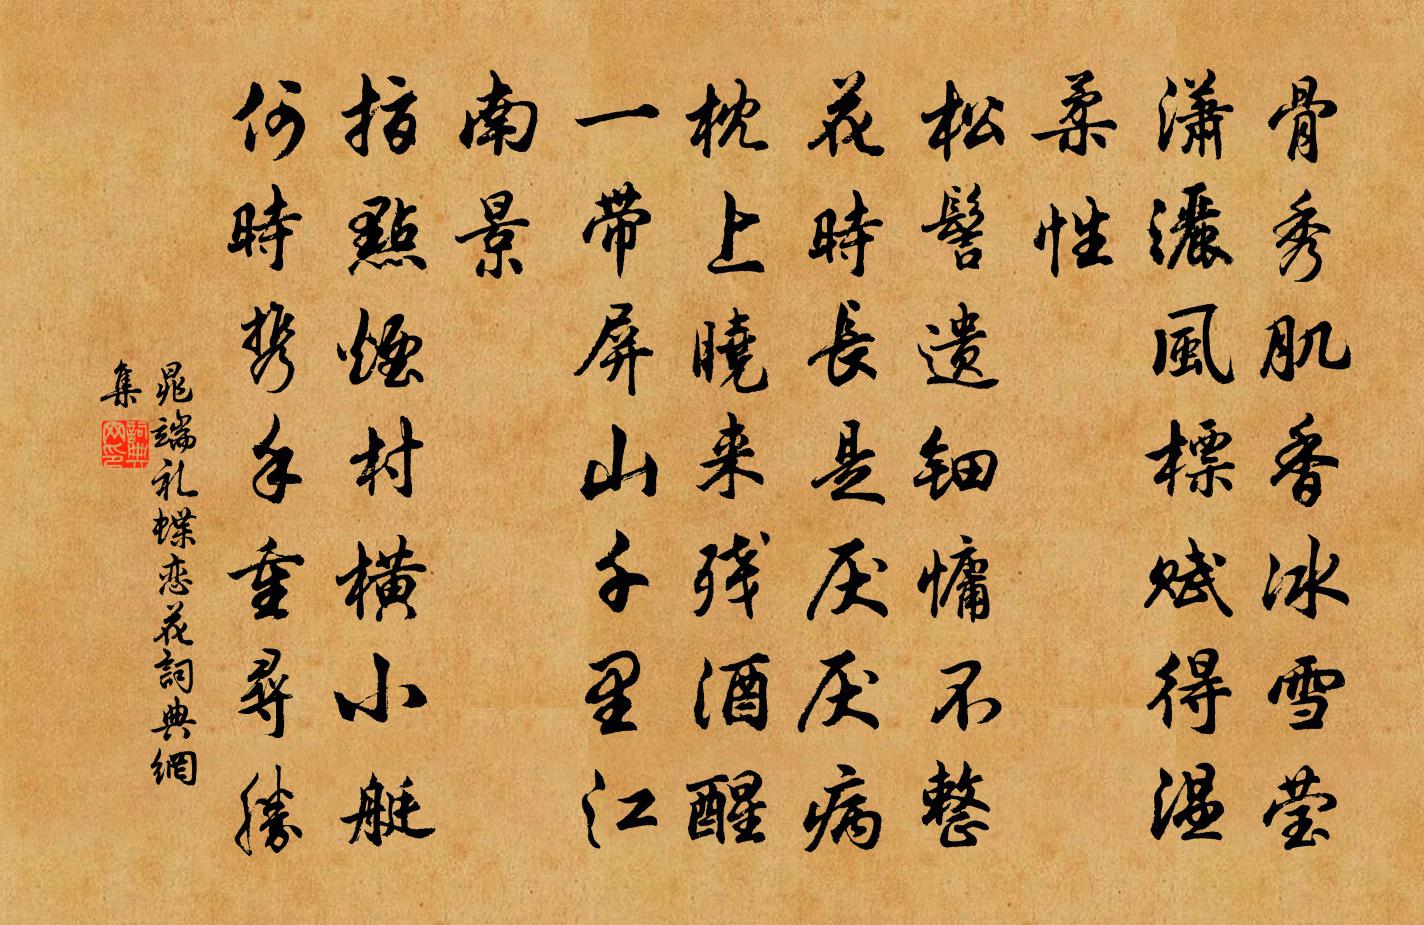 骨秀肌香冰雪莹
潇灑風標赋得温
柔性
松髻遗钿慵不整
花時長是厌厌病
枕上曉来残酒醒
一带屏山千里江
南景
指點煙村横小艇
何時携手重尋勝
晁端礼蝶恋花詞典網
集
詞典
网印